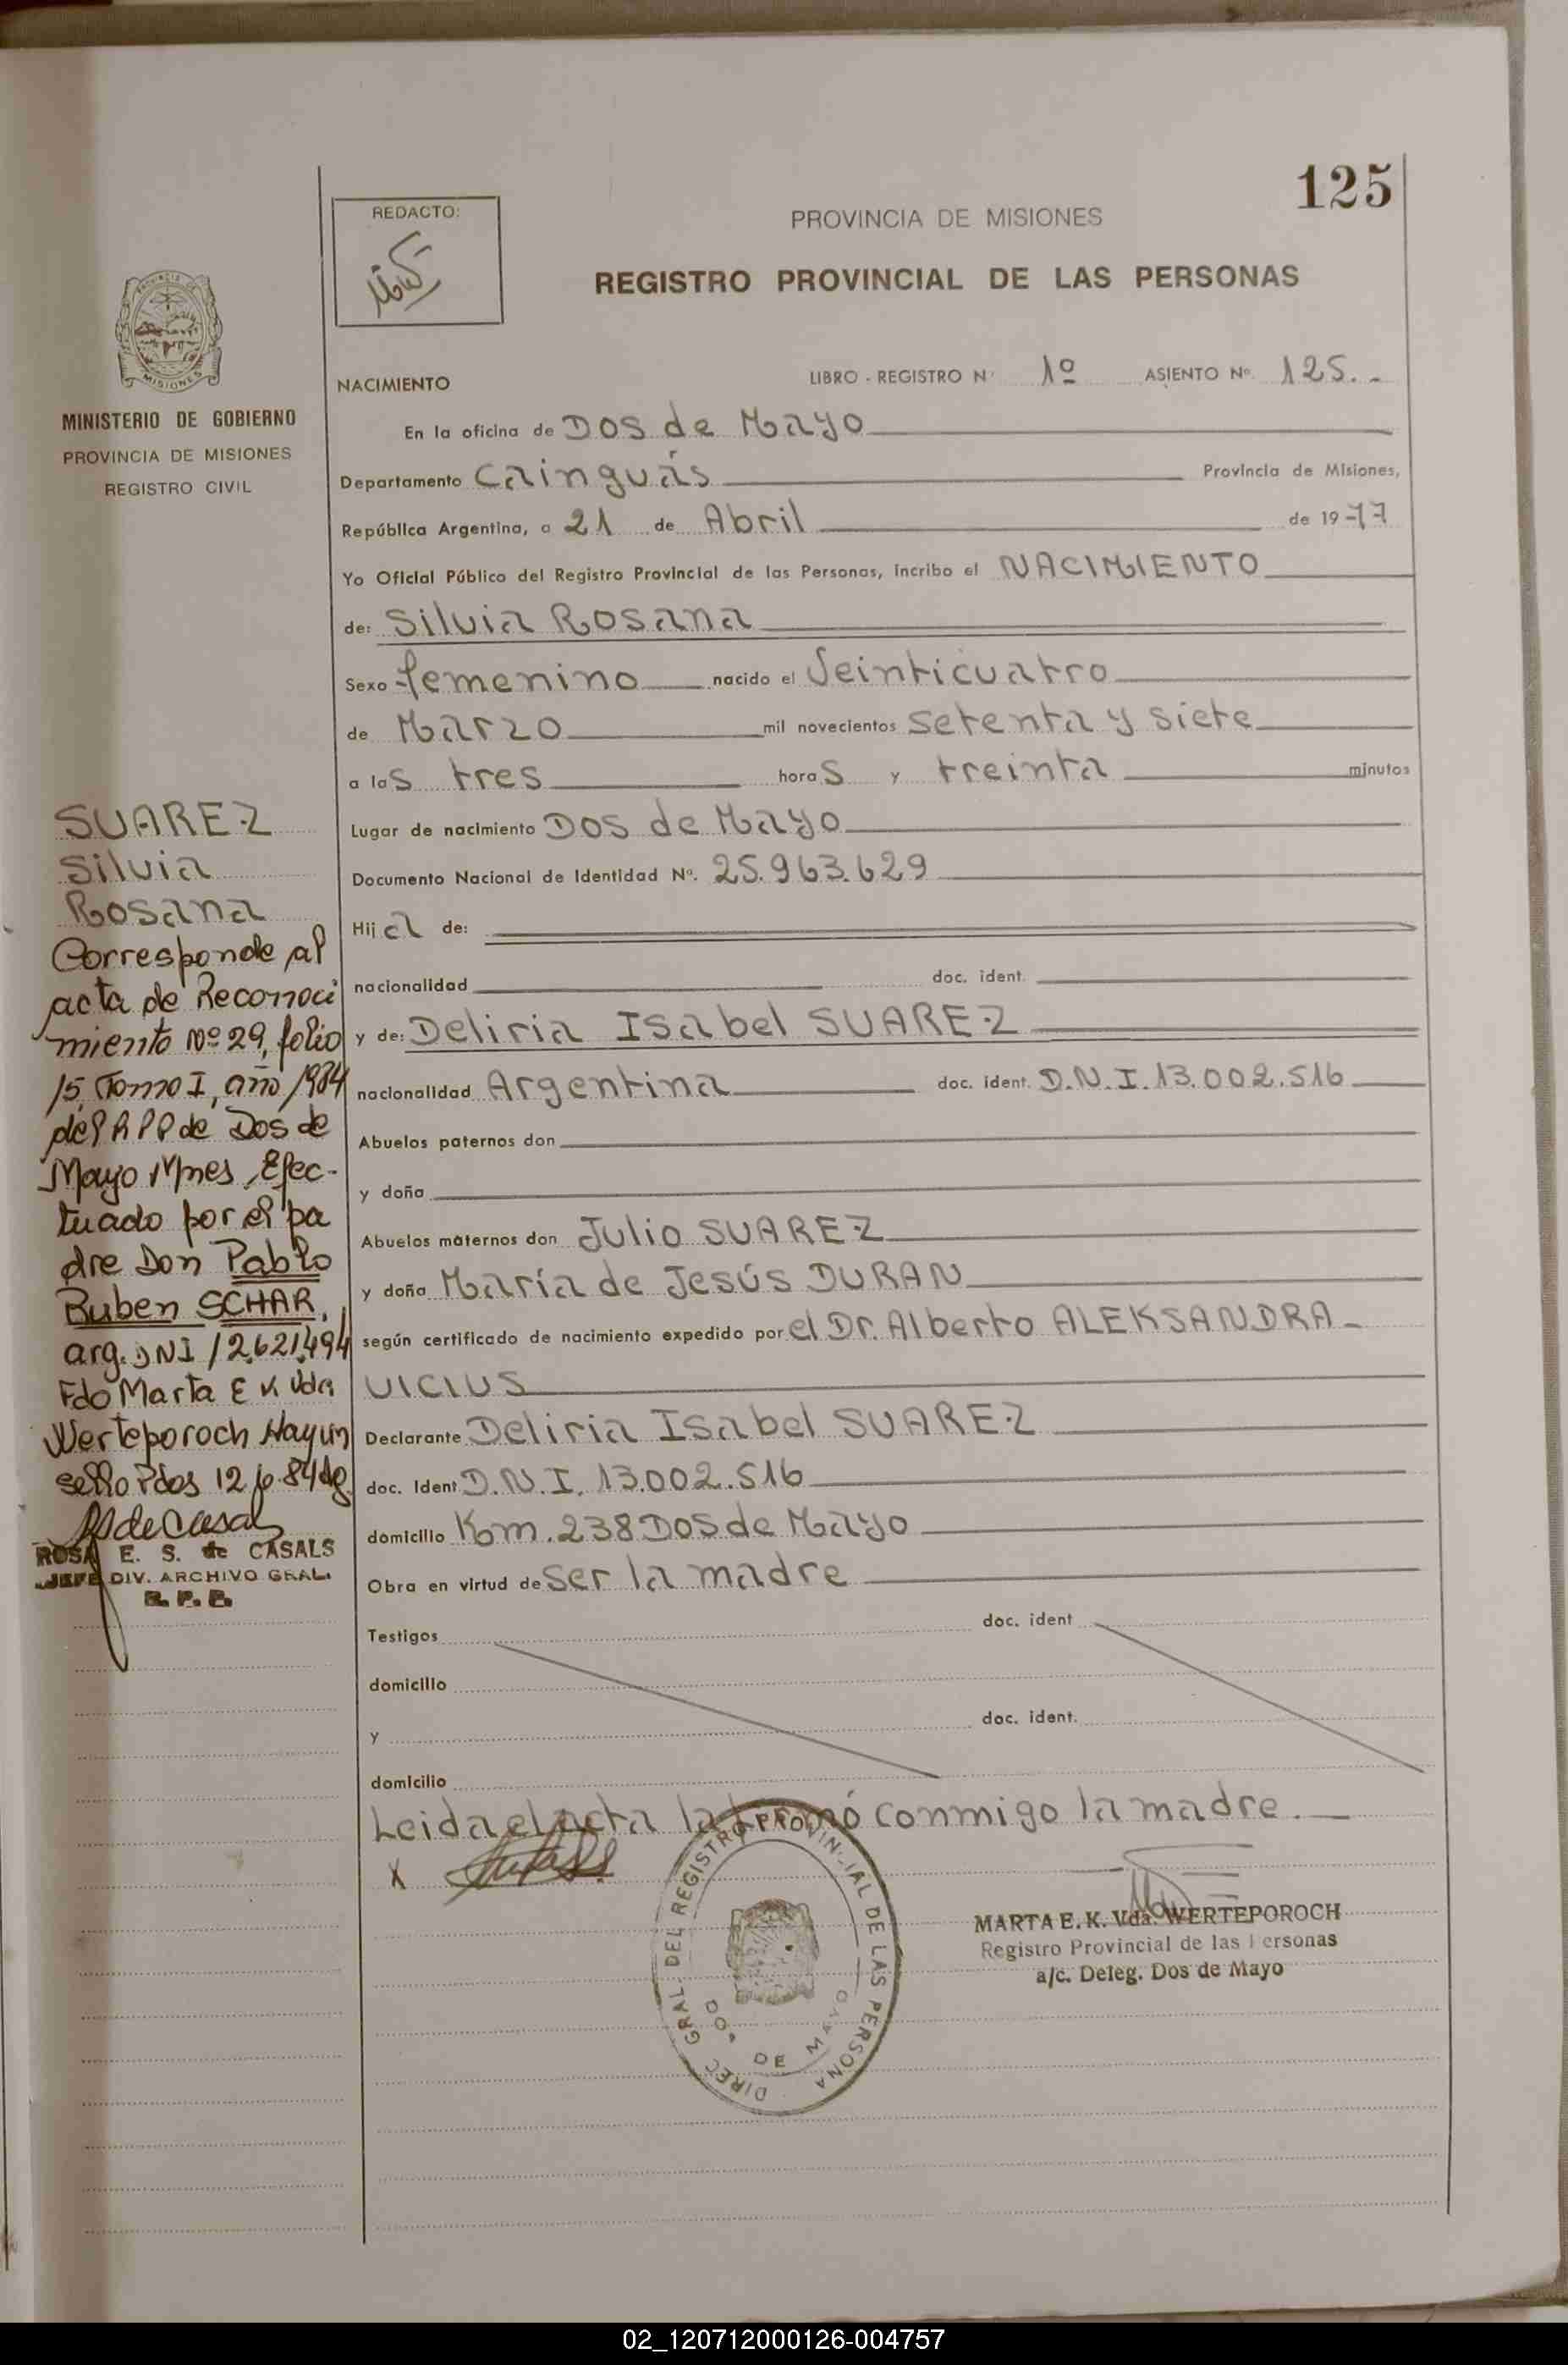 125
REDACTO:
PROVINCIA DE MISIONES
REGISTRO PROVINCIAL DE LAS PERSONAS
MINISTERIO DE GOBIERNO
PROVINCIA DE MISIONES
REGISTRO CIVIL
NACIMIENTO LIBRO - REGISTRO Nº 1º ASIENTO Nº 125.-
En la oficina de Dos de Mayo
Departamento Cainguás Provincia de Misiones,
República Argentina, a 21 de Abril de 1977
Yo Oficial Público del Registro Provincial de las Personas, incribo el NACIMIENTO
de: Silvia Rosana
Sexo femenino nacido el Veinticuatro
de Marzo mil novecientos setenta y siete
a las tres horas y treinta minutos
Lugar de nacimiento Dos de Mayo
Documento Nacional de Identidad Nº. 25.963.629
Hija de:
nacionalidad doc. ident.
y de: Deliria Isabel SUAREZ
nacionalidad Argentina doc. ident. D.N.I. 13.002.516
Abuelos paternos don
y doña
Abuelos maternos don Julio SUAREZ
y doña María de Jesús DURAN
según certificado de nacimiento expedido por el Dr. Alberto ALEKSANDRA-
VICIUS
Declarante Deliria Isabel SUAREZ
doc. Ident. D.N.I. 13.002.516
domicilio Km. 238 Dos de Mayo
Obra en virtud de ser la madre
Testigos doc. ident
domicilio
y doc. ident.
domicilio
Leida el acta la firmó conmigo la madre.
X
MARTA E. K. Vda. WERTEPOROCH
Registro Provincial de las Personas
a/c. Deleg. Dos de Mayo
DIREC GRAL. DEL REGISTRO PROVINCIAL DE LAS PERSONA
DOS DE MAYO
SUAREZ
Silvia
Rosana
Corresponde al
acta de Reconoci
miento Nº 29, folio
15, Tomo I, año 1984
del RPP de Dos de
Mayo Mnes, Efec-
tuado por el pa
dre Don Pablo
Ruben SCHAR,
arg. DNI 12.621.494
Fdo Marta E K Vda
Werteporoch Hay un
sello Pdos 12.6.84
ROSA E. S. de CASALS
JEFE DIV. ARCHIVO GRAL.
R. P. P.
PROVINCIA DE
MISIONES
02_120712000126-004757